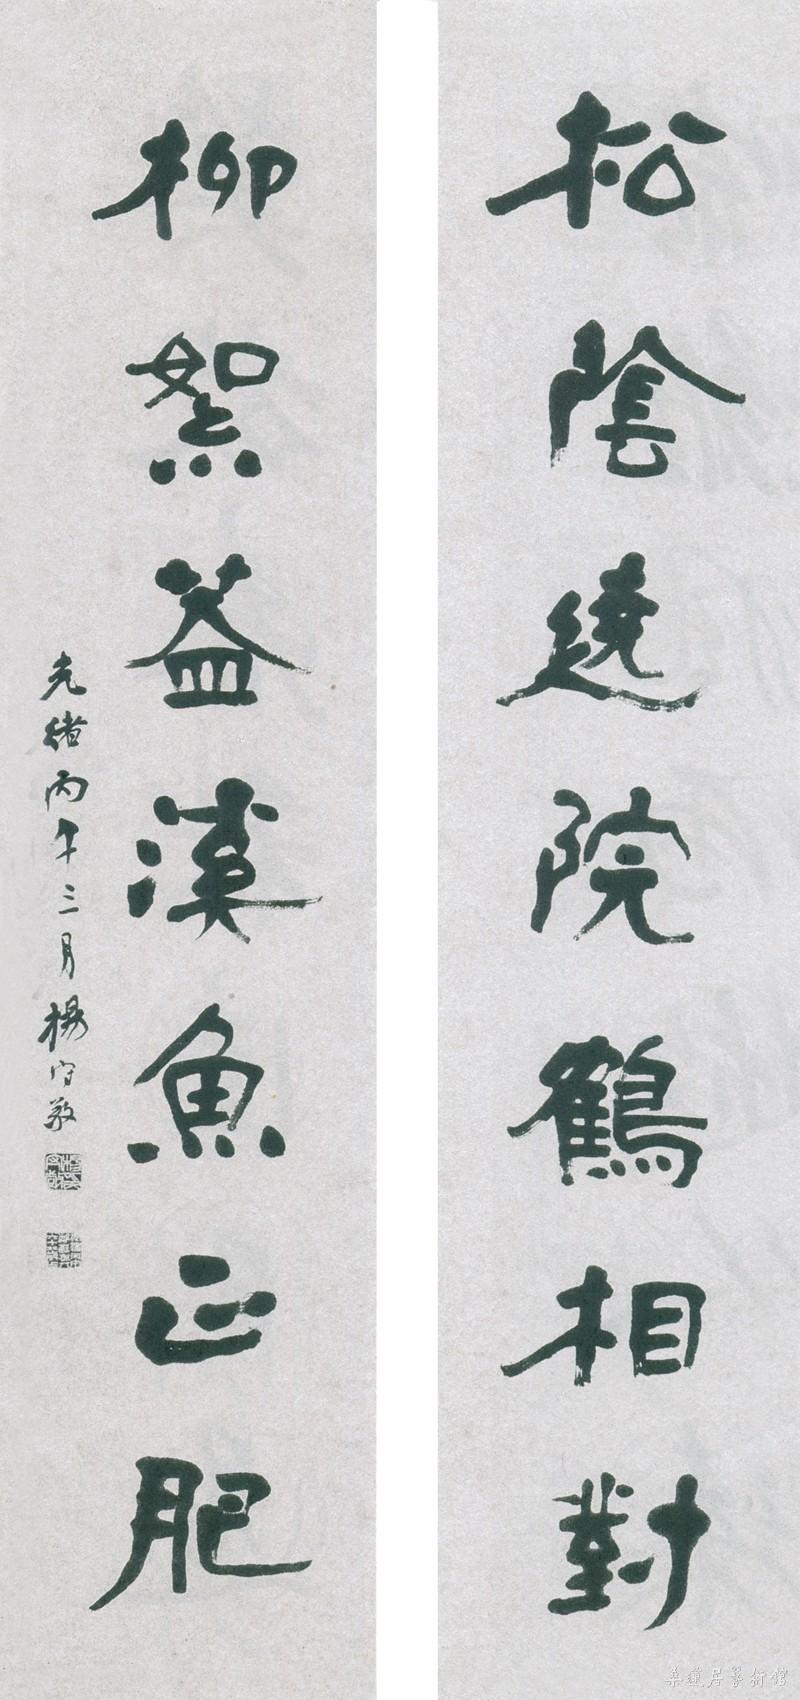 松陰遶院鶴相對
柳絮葢溪魚正肥
光緒丙午三月楊守敬
菜蓮居藝術館